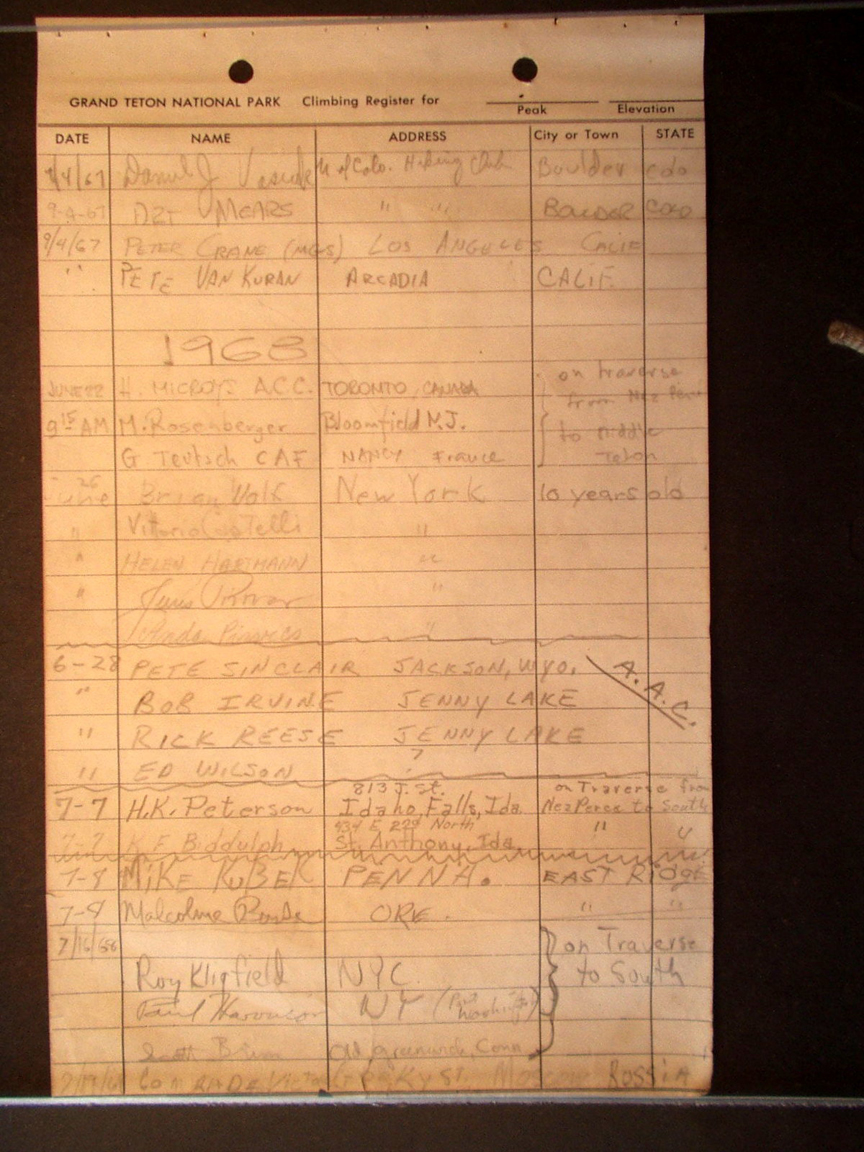 GRAND TETON NATIONAL PARK Climbing Register for
Peak Elevation
DATE NAME ADDRESS City or Town STATE
9/4/67 Daniel J U of Colo. Hiking Club Boulder Colo
9-4-67 MEARS " " BOULDER COLO
9/4/67 PETER CRANE (MGS) LOS ANGELES CALIF
" PETE VAN KURAN ARCADIA CALIF.
1968
JUNE 22 H. MICROYS A.C.C. TORONTO, CANADA on traverse
from Nez Perce
9 15 AM M. Rosenberger Bloomfield N.J. to Middle
G Teutsch CAF NANCY France Teton
June 26 Brian Wolf New York 10 years old
" "
" HELEN HARTMANN "
" "
"
6-28 PETE SINCLAIR JACKSON, WYO. A.A.C.
" BOB IRVINE JENNY LAKE
" RICK REESE JENNY LAKE
" ED WILSON ?
813 J. St. on Traverse from
7-7 H.K. Peterson Idaho Falls, Ida. Nez Perce to South
434 E 2nd North
7-7 K F Biddulph St. Anthony, Ida. " "
7-8 MIKE KUBEK PENNA. EAST RIDGE
7-8 Malcolme ORE. " "
7/16/68 on Traverse
Roy Kligfield NYC. to South
Paul NY (Port Washington)
Scott Old Greenwich, Conn
COMRADE Moscow RUSSIA